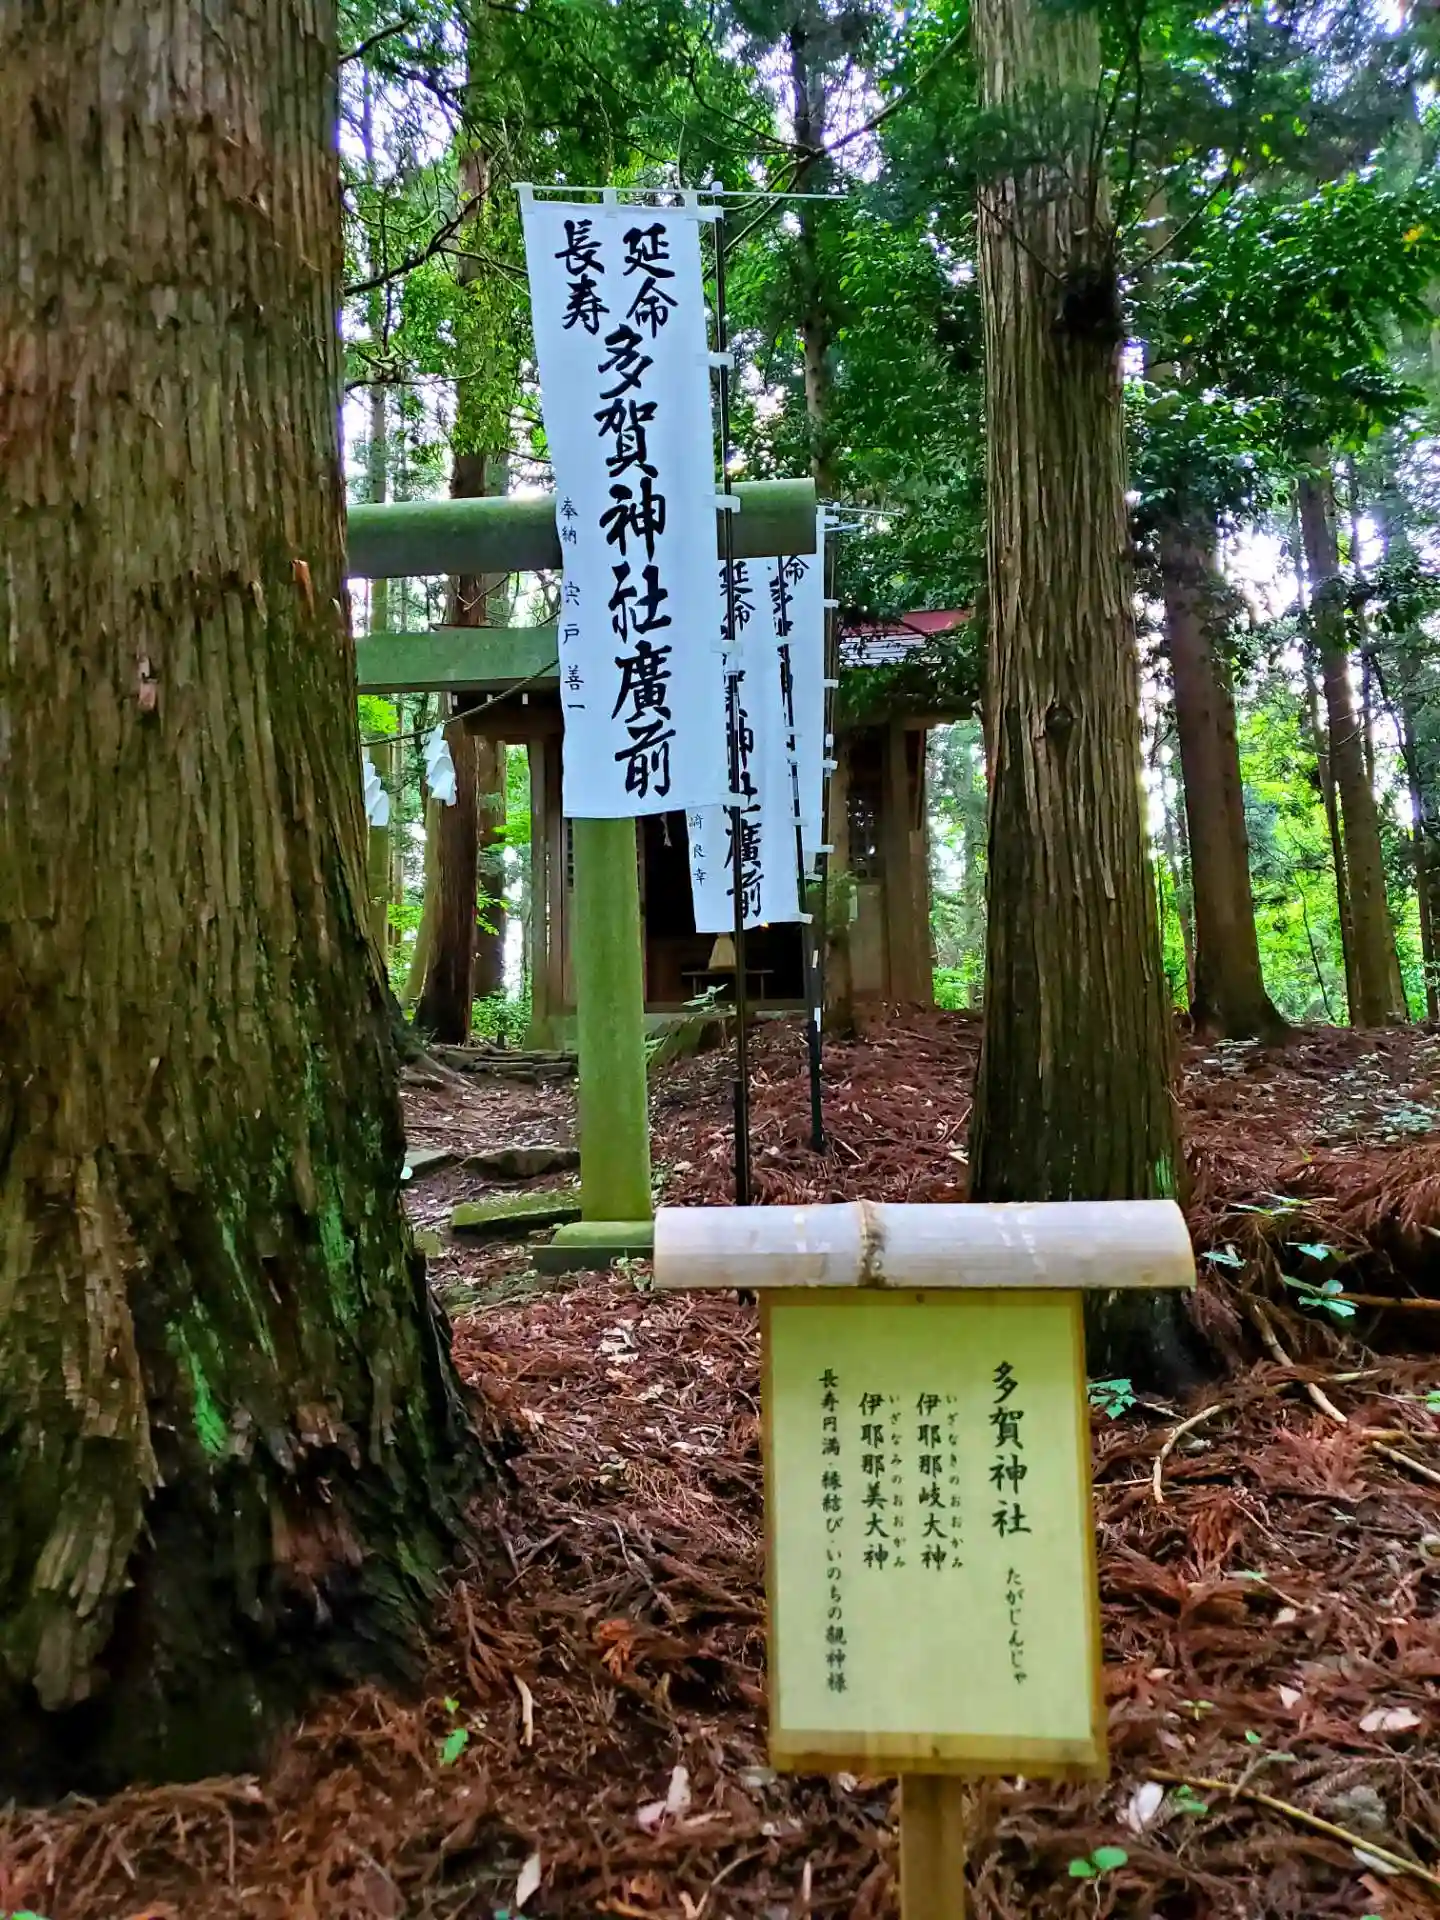 延命
長寿
多賀神社廣前
奉納 宍戸善一
延命
神社廣前
良幸
命
多賀神社 たがじんじゃ
いざなきのおおかみ
伊耶那岐大神
いざなみのおおかみ
伊耶那美大神
長寿円満・縁結び・いのちの親神様